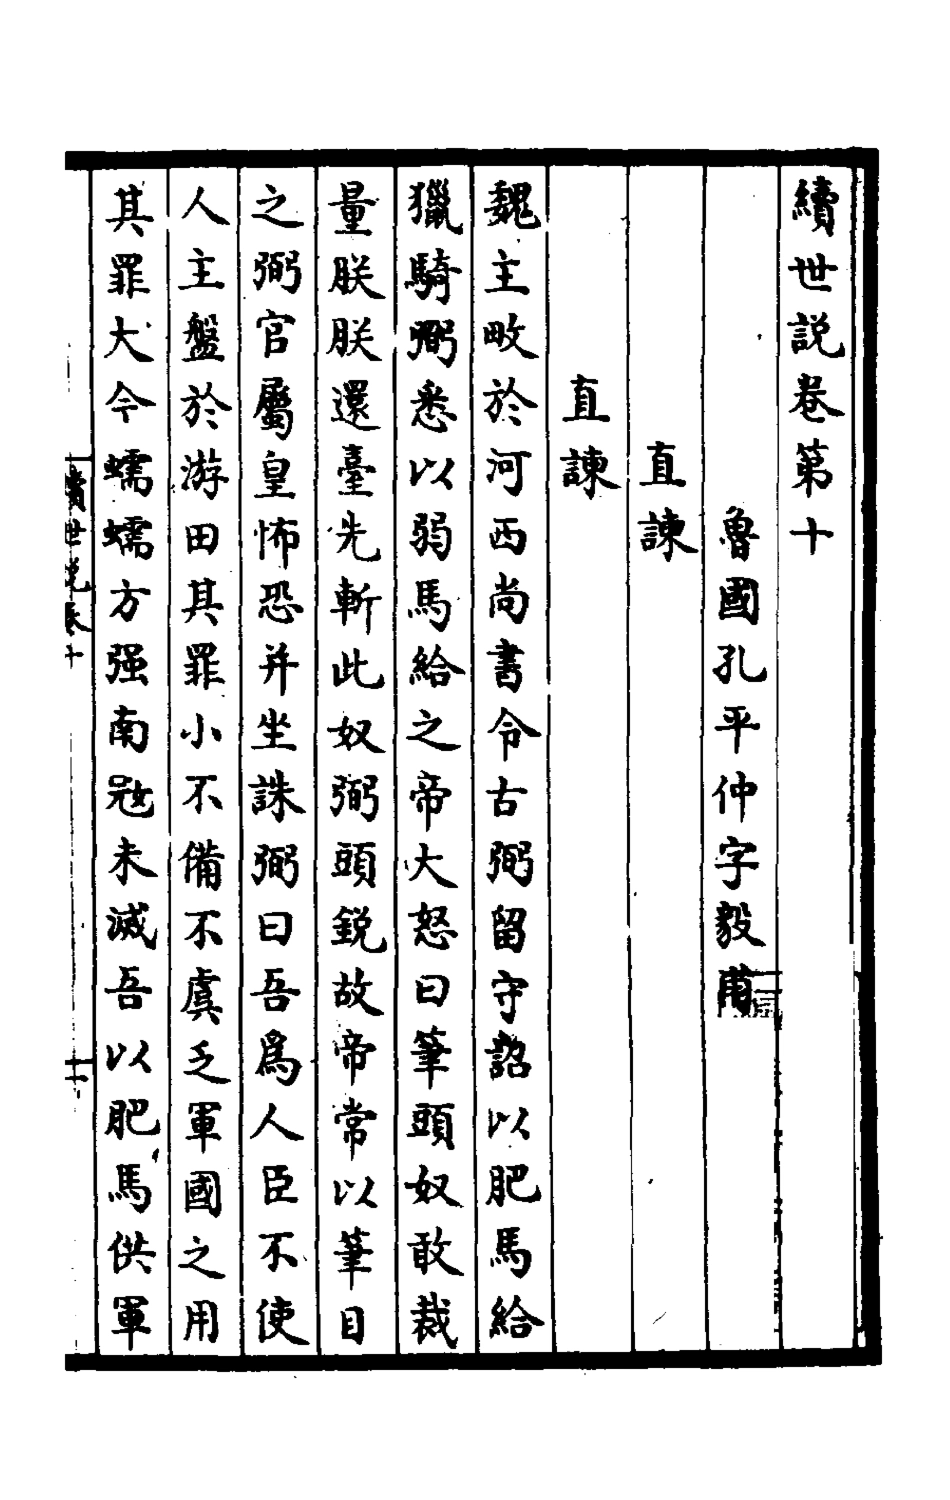 續世説卷第十
魯國孔平仲字毅甫
直諫
直諫
魏主畋於河西尚書令古弼留守詔以肥馬給
獵騎弼悉以弱馬給之帝大怒曰筆頭奴敢裁
量朕朕還臺先斬此奴弼頭鋭故帝常以筆目
之弼官屬皇怖恐并坐誅弼曰吾爲人臣不使
人主盤於游田其罪小不備不虞乏軍國之用
其罪大今蠕蠕方强南冦未滅吾以肥馬供軍
續世説卷十
十一